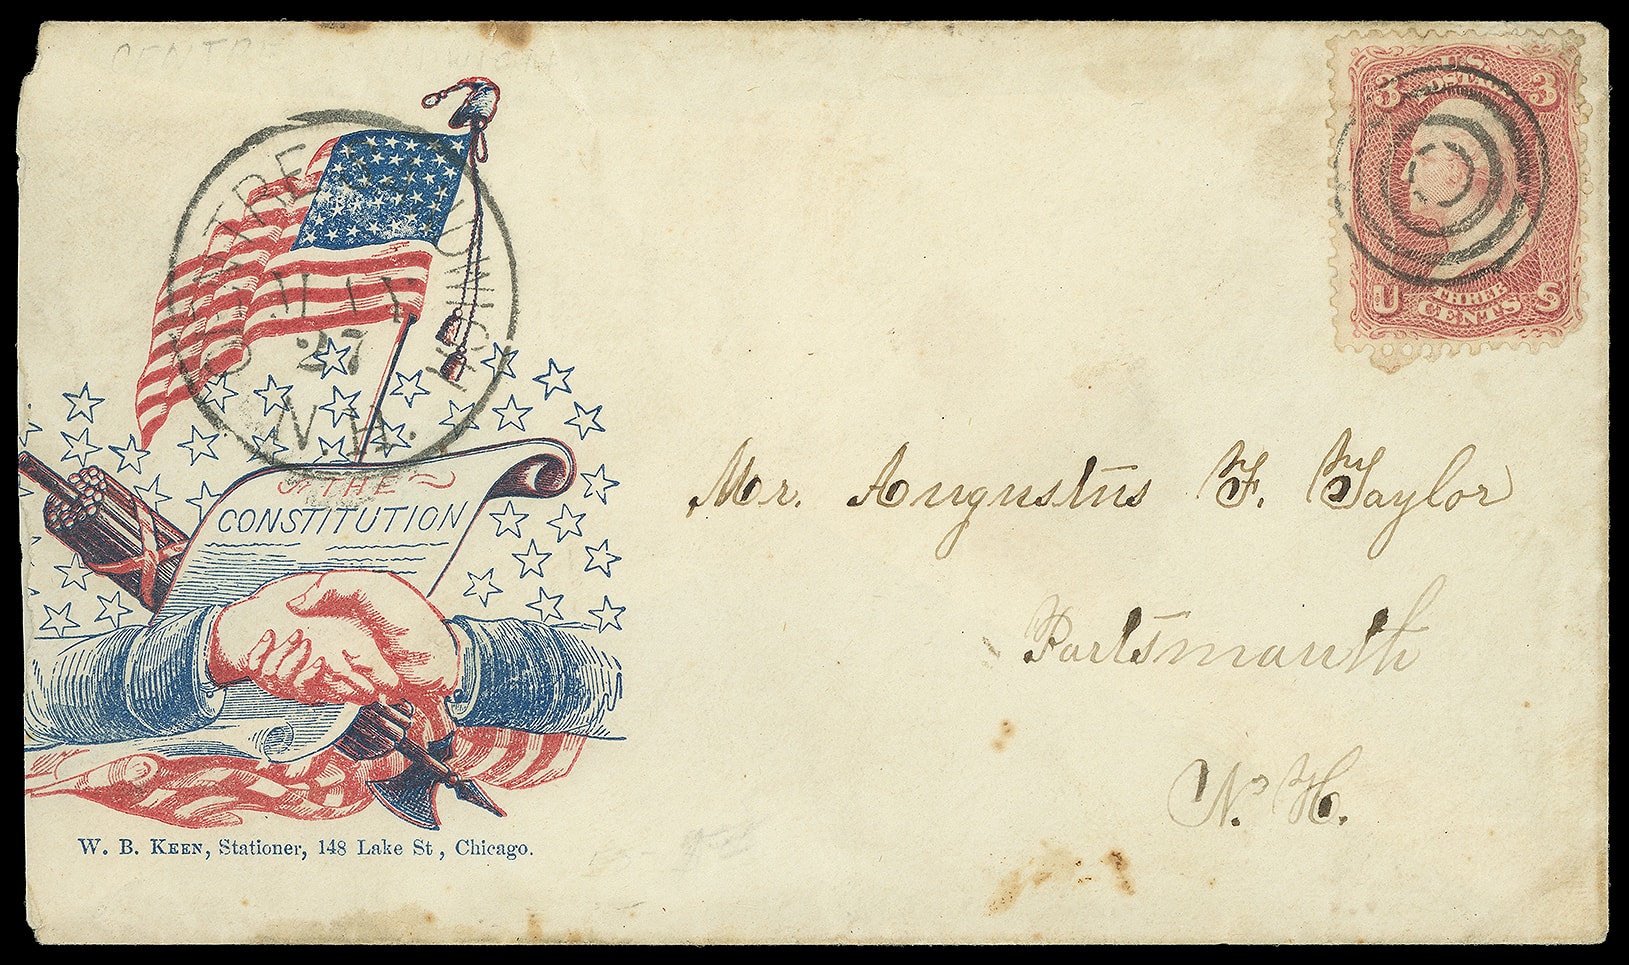 CENTRE HARMONY
MAY
27
N.H.
THE
CONSTITUTION
W. B. KEEN, Stationer, 148 Lake St, Chicago.
3 U.S. POSTAGE 3
U THREE CENTS S
Mr. Augustus F. Taylor
Portsmouth
N. H.